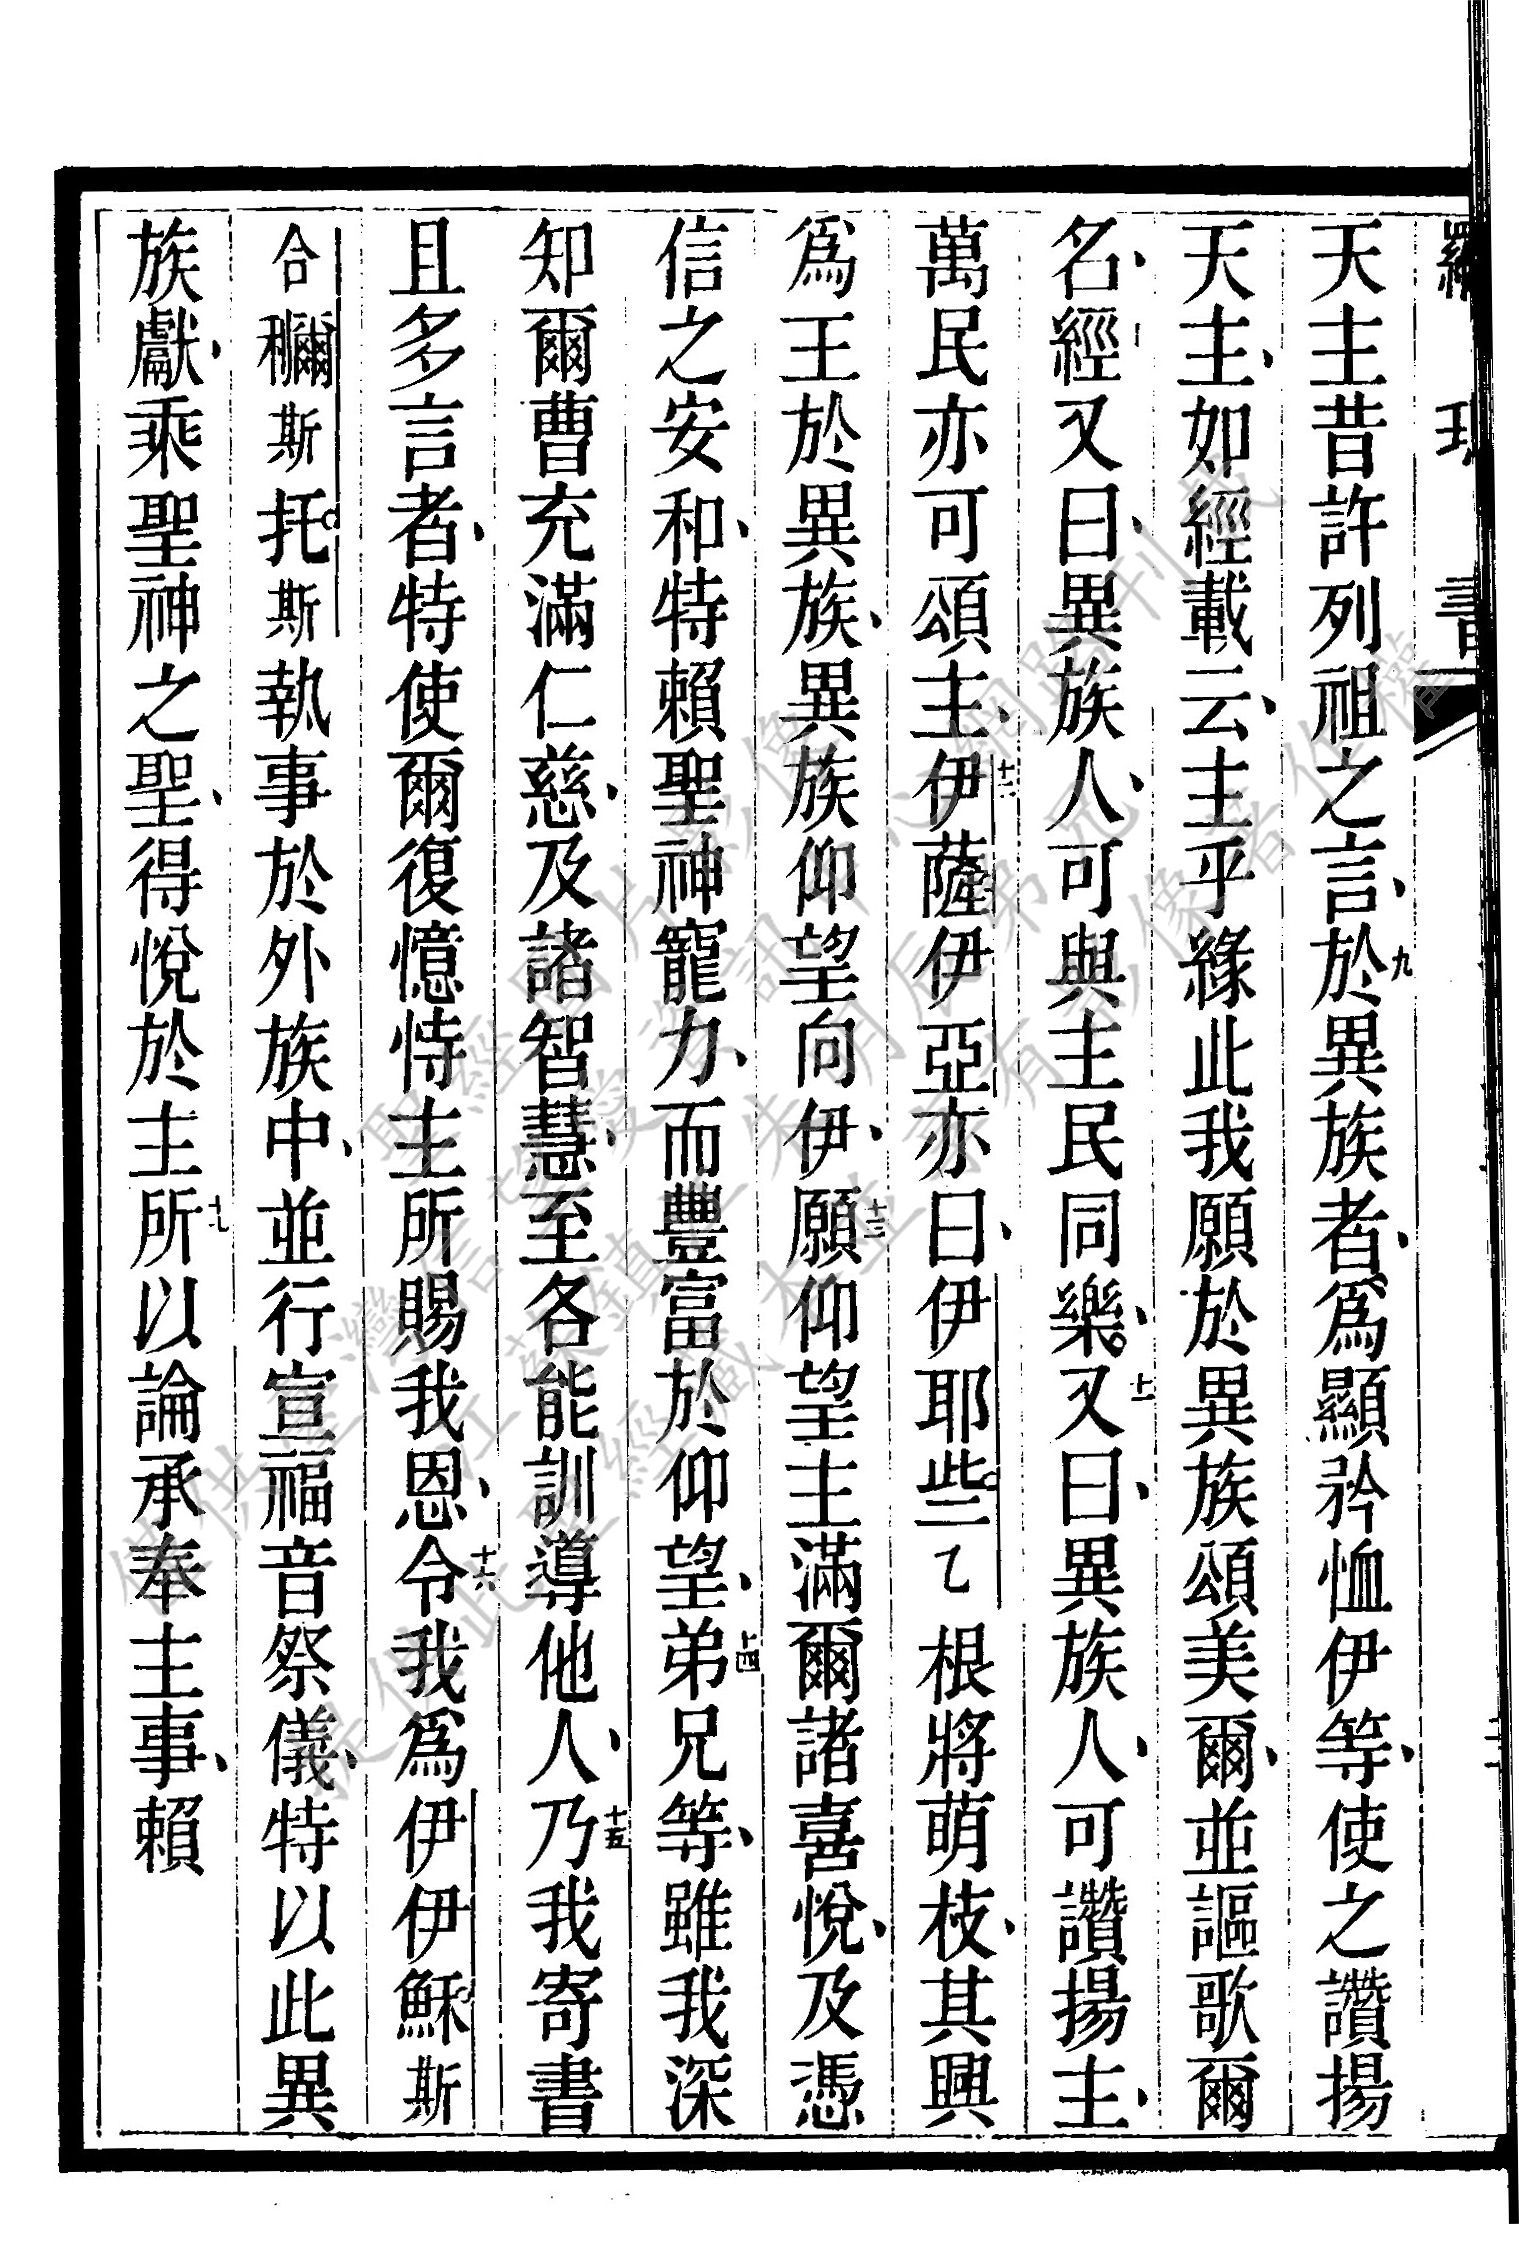 天主昔許列祖之言、九於異族者、爲顯矜恤伊等、使之讚揚
天主、如經載云、主乎緣此我願於異族頌美爾、並謳歌爾
名、十經又曰、異族人、可與主民同樂。十一又曰、異族人、可讚揚主、
萬民亦可頌主、十二伊薩伊亞亦曰、伊耶些乙根將萌枝、其興
爲王於異族、異族仰望向伊、十三願仰望主滿爾諸喜悅、及憑
信之安和、特賴聖神寵力、而豐富於仰望、十四弟兄等、雖我深
知爾曹充滿仁慈、及諸智慧、至各能訓導他人、十五乃我寄書
且多言者、特使爾復憶恃主所賜我恩、十六令我爲伊伊穌斯
合穪斯托斯執事於外族中、並行宣福音祭儀、特以此異
族獻、乘聖神之聖、得悅於主十七所以論承奉主事、賴
書